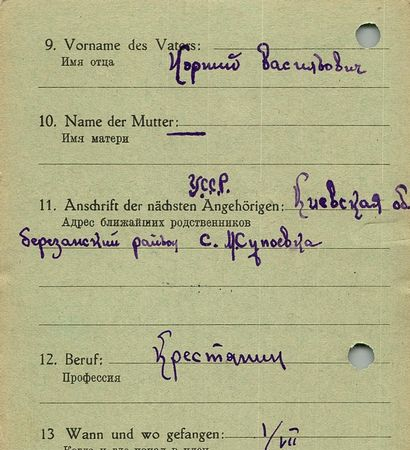 9. Vorname des Vaters:
Имя отца Корний Васильович
10. Name der Mutter: —
Имя матери
У.С.С.Р.
11. Anschrift der nächsten Angehörigen: Киевская об
Адрес ближайших родственников
березанский район С. Жуковка
12. Beruf: Крестянин
Профессия
13 Wann und wo gefangen: 1/VII
Когда и где попал в плен